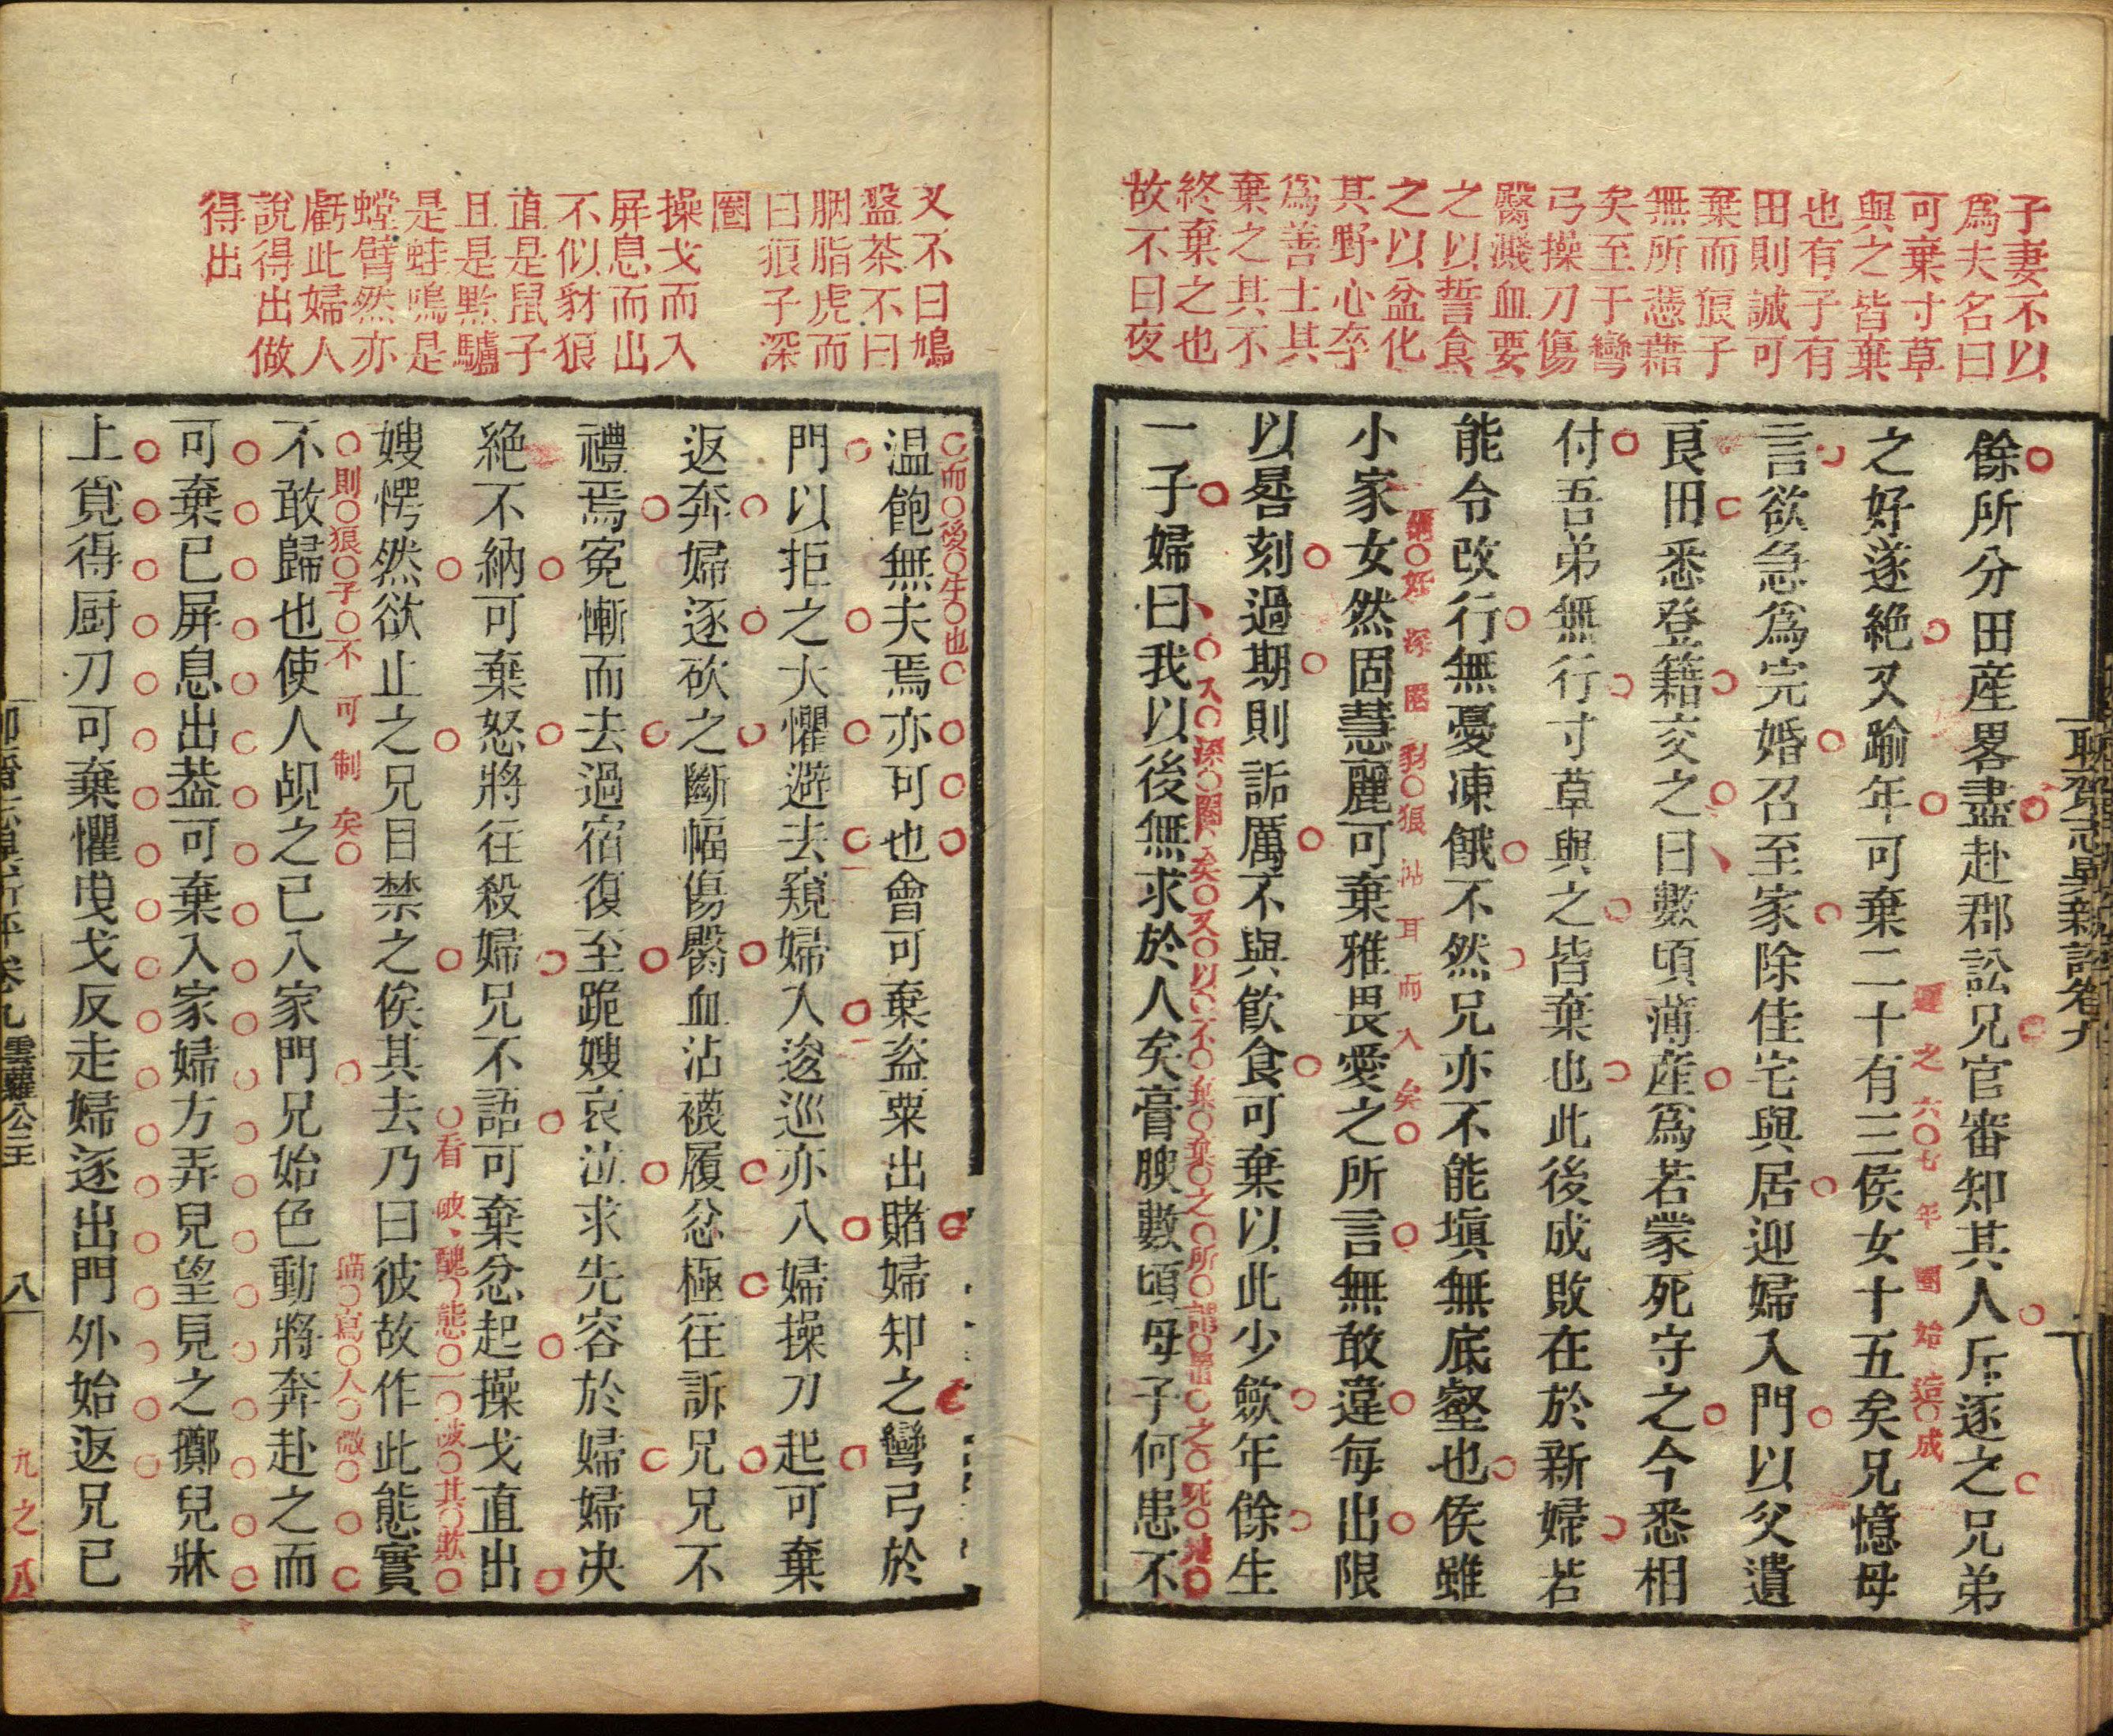 子妻不以
爲夫名曰
可棄寸草
與之皆棄
也有子有
田則誠可
棄而狼子
無所憑藉
矣至于彎
弓操刀傷
臀濺血要
之以誓食
之以盆化
其野心卒
爲善士其
棄之其不
終棄之也
故不曰夜
聊齋志異新評卷九
餘所分田産畧盡赴郡訟兄官審知其人斥逐之兄弟
之好遂絶又踰年可棄二十有三侯女十五矣兄憶母
遲之六七年圈始造成
言欲急爲完婚召至家除佳宅與居迎婦入門以父遺
良田悉登籍交之曰數頃薄産爲若蒙死守之今悉相
付吾弟無行寸草與之皆棄也此後成敗在於新婦若
能令改行無憂凍餓不然兄亦不能塡無底壑也侯雖
深圈豺狼帖耳而入矣
小家女然固慧麗可棄雅畏愛之所言無敢違每出限
以晷刻過期則詬厲不與飮食可棄以此少歛年餘生
入深圈矣又以不棄棄之所謂置之死地
一子婦曰我以後無求於人矣膏腴數頃母子何患不
又不曰鳩
盤茶不曰
胭脂虎而
曰狼子深
圈
操戈而入
屏息而出
不似豺狼
直是鼠子
且是黔驢
是蛙鳴是
螳臂然亦
虧此婦人
說得出做
得出
而後生也
温飽無夫焉亦可也會可棄盜粟出賭婦知之彎弓於
門以拒之大懼避去窺婦入逡巡亦入婦操刀起可棄
返奔婦逐砍之斷幅傷臀血沾襪履忿極往訴兄兄不
禮焉寃慚而去過宿復至跪嫂哀泣求先容於婦婦决
絶不納可棄怒將往殺婦兄不語可棄忿起操戈直出
看破醜態一破其欺
嫂愕然欲止之兄目禁之俟其去乃曰彼故作此態實
則狼子不可制矣
描寫入微
不敢歸也使人覘之已入家門兄始色動將奔赴之而
可棄已屏息出葢可棄入家婦方弄兒望見之擲兒牀
上覓得厨刀可棄懼曳戈反走婦逐出門外始返兄已
卷九
雲蘿公主
八
九之八